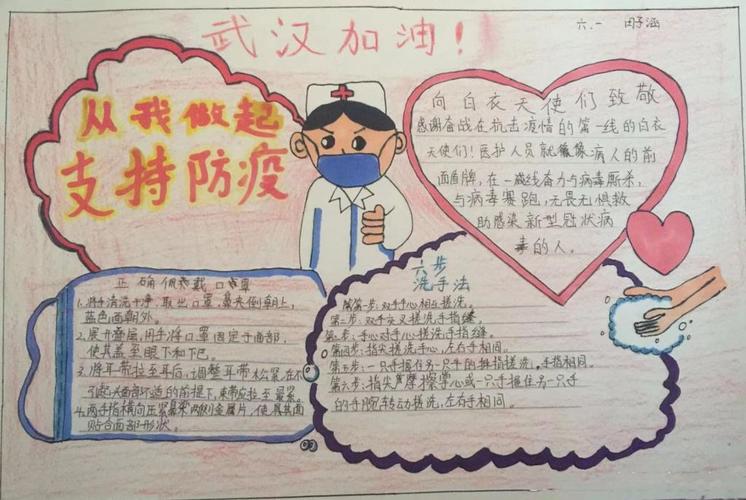 武汉加油！
六.一 田子涵
从我做起
支持防疫
向白衣天使们致敬
感谢奋战在抗击疫情的第一线的白衣
天使们！医护人员就像病人的前
面盾牌，在一线奋力与病毒厮杀，
与病毒赛跑，无畏无惧救
助感染新型冠状病
毒的人。
正确佩戴口罩
1.将手清洗干净，取出口罩，鼻夹侧朝上，
蓝色面朝外。
2.展开叠层，用手将口罩固定于面部，
使其盖至眼下和下巴。
3.将耳带拉至耳后，调整耳带松紧，在不
引起头面部不适的前提下，束带应拉至最紧。
4.两手指横向压紧鼻梁两侧金属片，使其其面
贴合面部形状。
六步
洗手法
第一步：双手心相互搓洗。
第二步：双手交叉搓洗手指缝。
第三步：手心对手心搓洗手指缝。
第四步：指尖搓洗手心，左右手相同。
第五步：一只手握住另一只手的拇指搓洗，手指相同。
第六步：指尖摩擦掌心或一只手握住另一只手
的手腕转动搓洗，左右手相同。